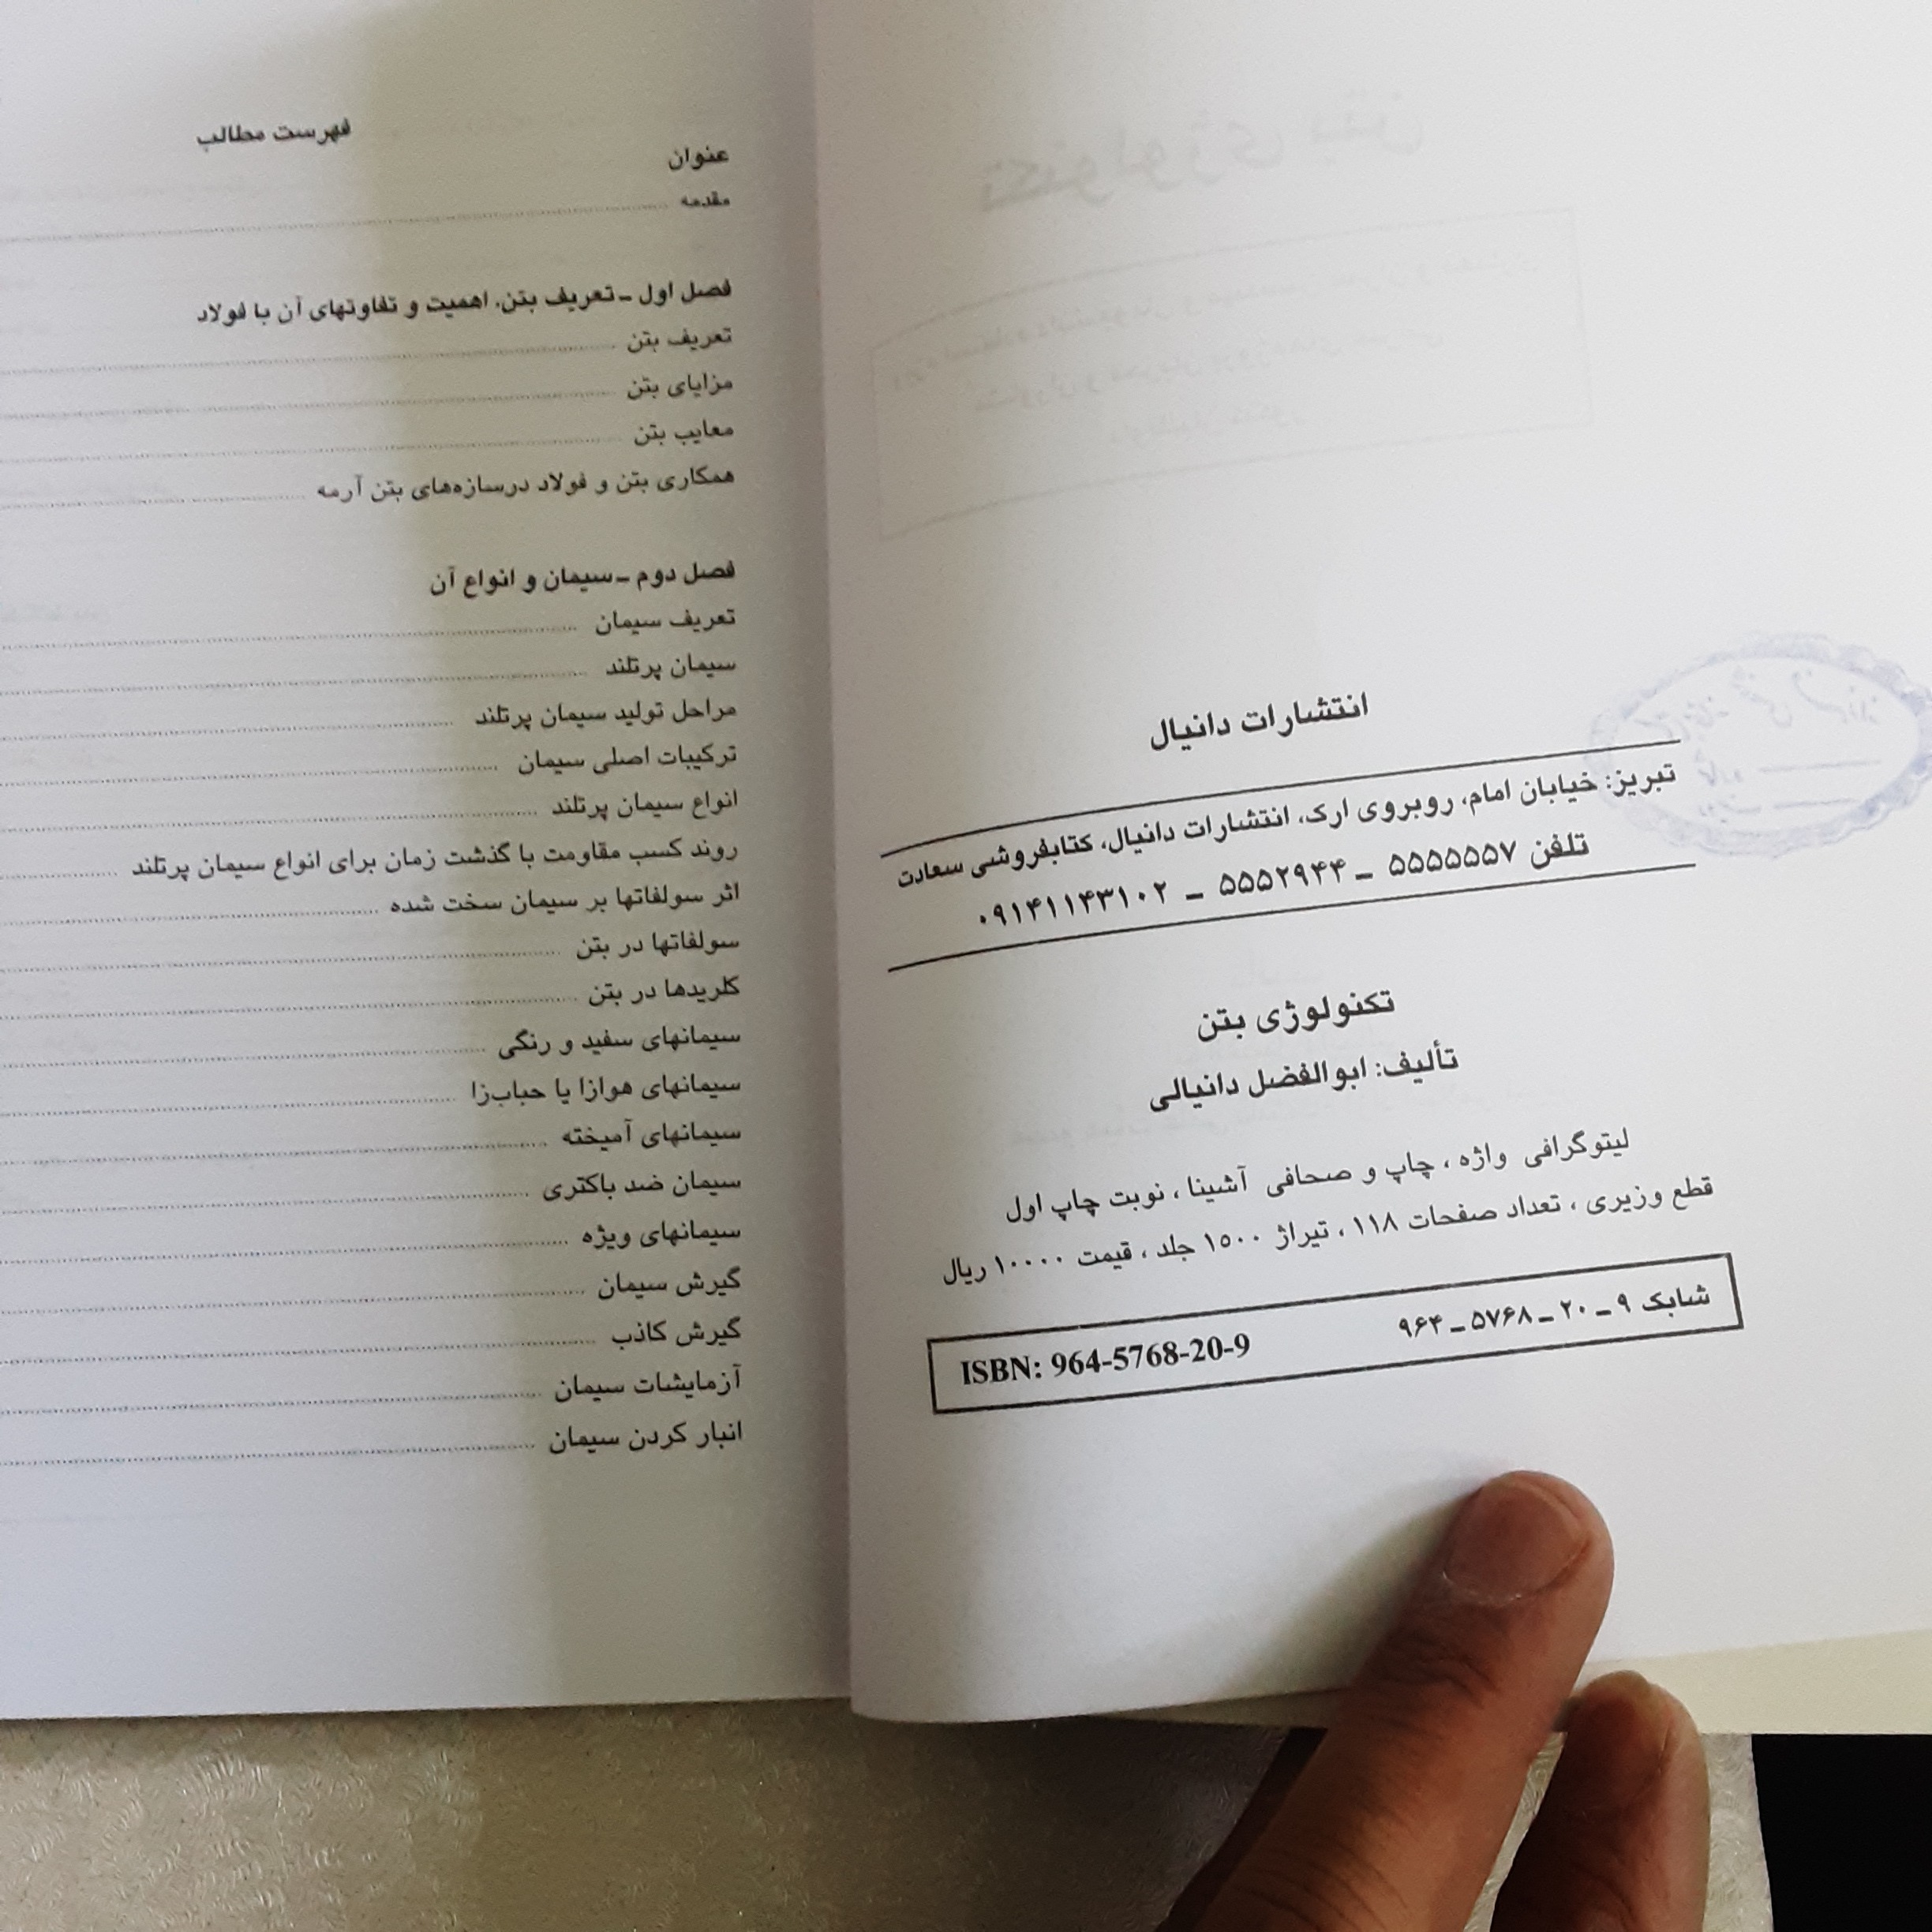 انتشارات دانیال
تبریز: خیابان امام، روبروی ارک، انتشارات دانیال، کتابفروشی سعادت
تلفن ۵۵۵۵۵۵۷ ـ ۵۵۵۲۹۴۴ ـ ۰۹۱۴۱۱۴۳۱۰۲
تکنولوژی بتن
تألیف: ابوالفضل دانیالی
لیتوگرافی واژه ، چاپ و صحافی آشینا ، نوبت چاپ اول
قطع وزیری ، تعداد صفحات ۱۱۸ ، تیراژ ۱۵۰۰ جلد ، قیمت ۱۰۰۰۰ ریال
شابک ۹ ـ ۲۰ ـ ۵۷۶۸ ـ ۹۶۴
ISBN: 964-5768-20-9
فهرست مطالب
عنوان
مقدمه
فصل اول ـ تعریف بتن، اهمیت و تفاوتهای آن با فولاد
تعریف بتن
مزایای بتن
معایب بتن
همکاری بتن و فولاد درسازه‌های بتن آرمه
فصل دوم ـ سیمان و انواع آن
تعریف سیمان
سیمان پرتلند
مراحل تولید سیمان پرتلند
ترکیبات اصلی سیمان
انواع سیمان پرتلند
روند کسب مقاومت با گذشت زمان برای انواع سیمان پرتلند
اثر سولفاتها بر سیمان سخت شده
سولفاتها در بتن
کلریدها در بتن
سیمانهای سفید و رنگی
سیمانهای هوازا یا حباب‌زا
سیمانهای آمیخته
سیمان ضد باکتری
سیمانهای ویژه
گیرش سیمان
گیرش کاذب
آزمایشات سیمان
انبار کردن سیمان